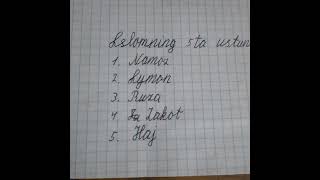 Islomning 5ta ustun
1. Namoz
2. Iymon
3. Ruza
4. Zakot
5. Haj